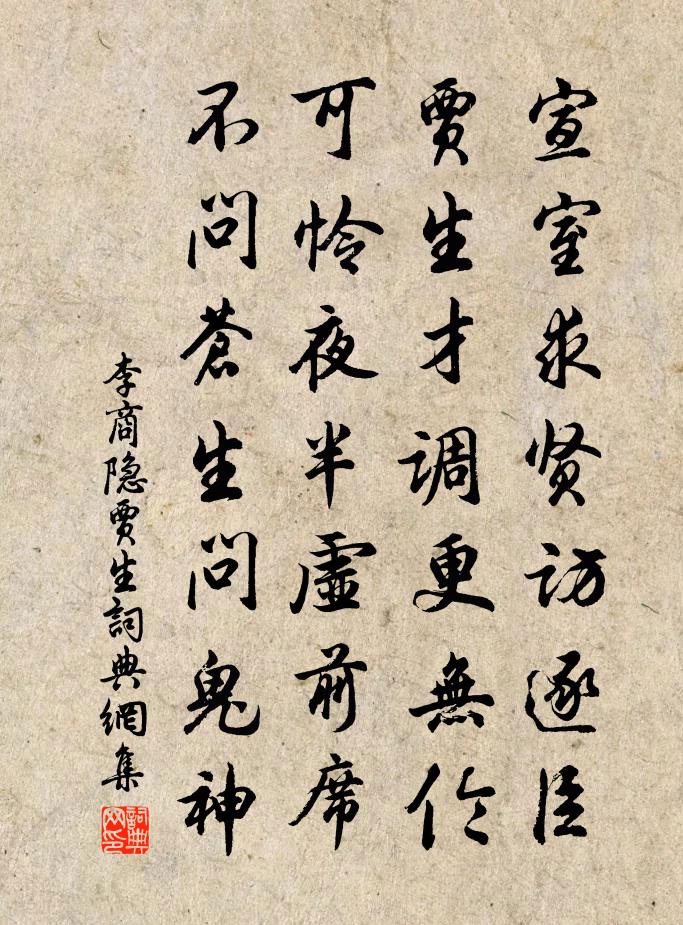 宣室求贤访逐臣
賈生才调更無伦
可怜夜半虚前席
不问蒼生问鬼神
李商隐賈生詞典網集
詞典网印